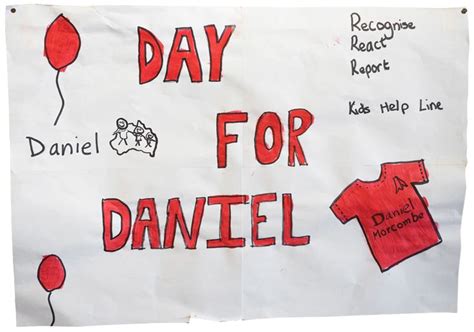 DAY
FOR
DANIEL
Recognise
React
Report
Kids Help Line
Daniel
Daniel
Morcombe